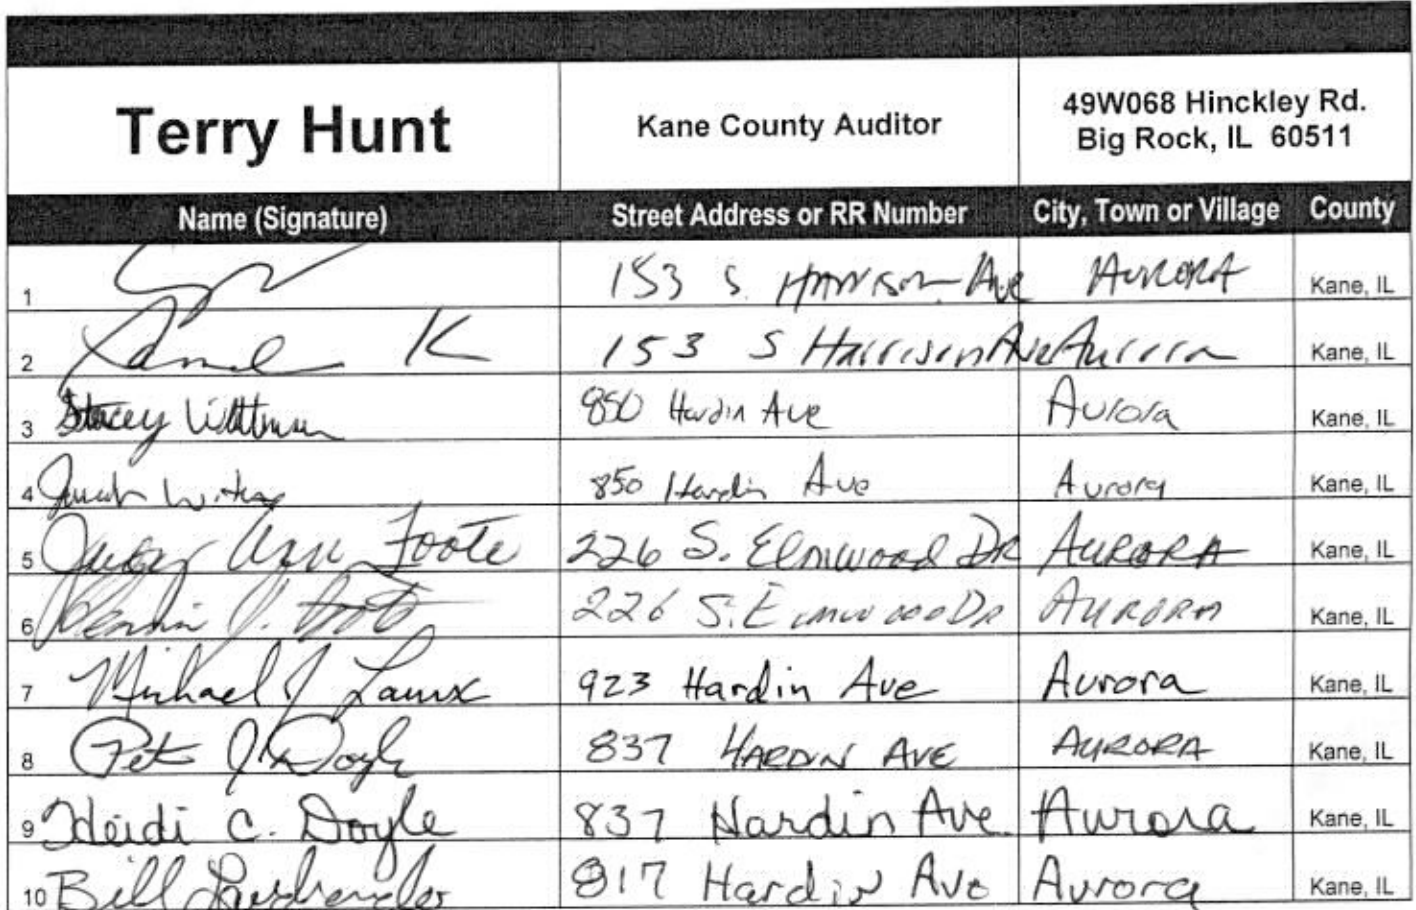 Terry Hunt Kane County Auditor 49W068 Hinckley Rd.
Big Rock, IL 60511
Name (Signature) Street Address or RR Number City, Town or Village County
1 153 S. Harrison Ave AURORA Kane, IL
2 K 153 S Harrison Ave Aurora Kane, IL
3 Stacey 850 Hardin Ave Aurora Kane, IL
4 850 Hardin Ave Aurora Kane, IL
5 Ann Foote 226 S. Elmwood DR AURORA Kane, IL
6 J. Foote 226 S. Elmwood DR AURORA Kane, IL
7 Michael J Laux 923 Hardin Ave Aurora Kane, IL
8 Pete J Doyle 837 HARDIN AVE AURORA Kane, IL
9 Heidi C. Doyle 837 Hardin Ave. Aurora Kane, IL
10 Bill 817 Hardin Ave Aurora Kane, IL